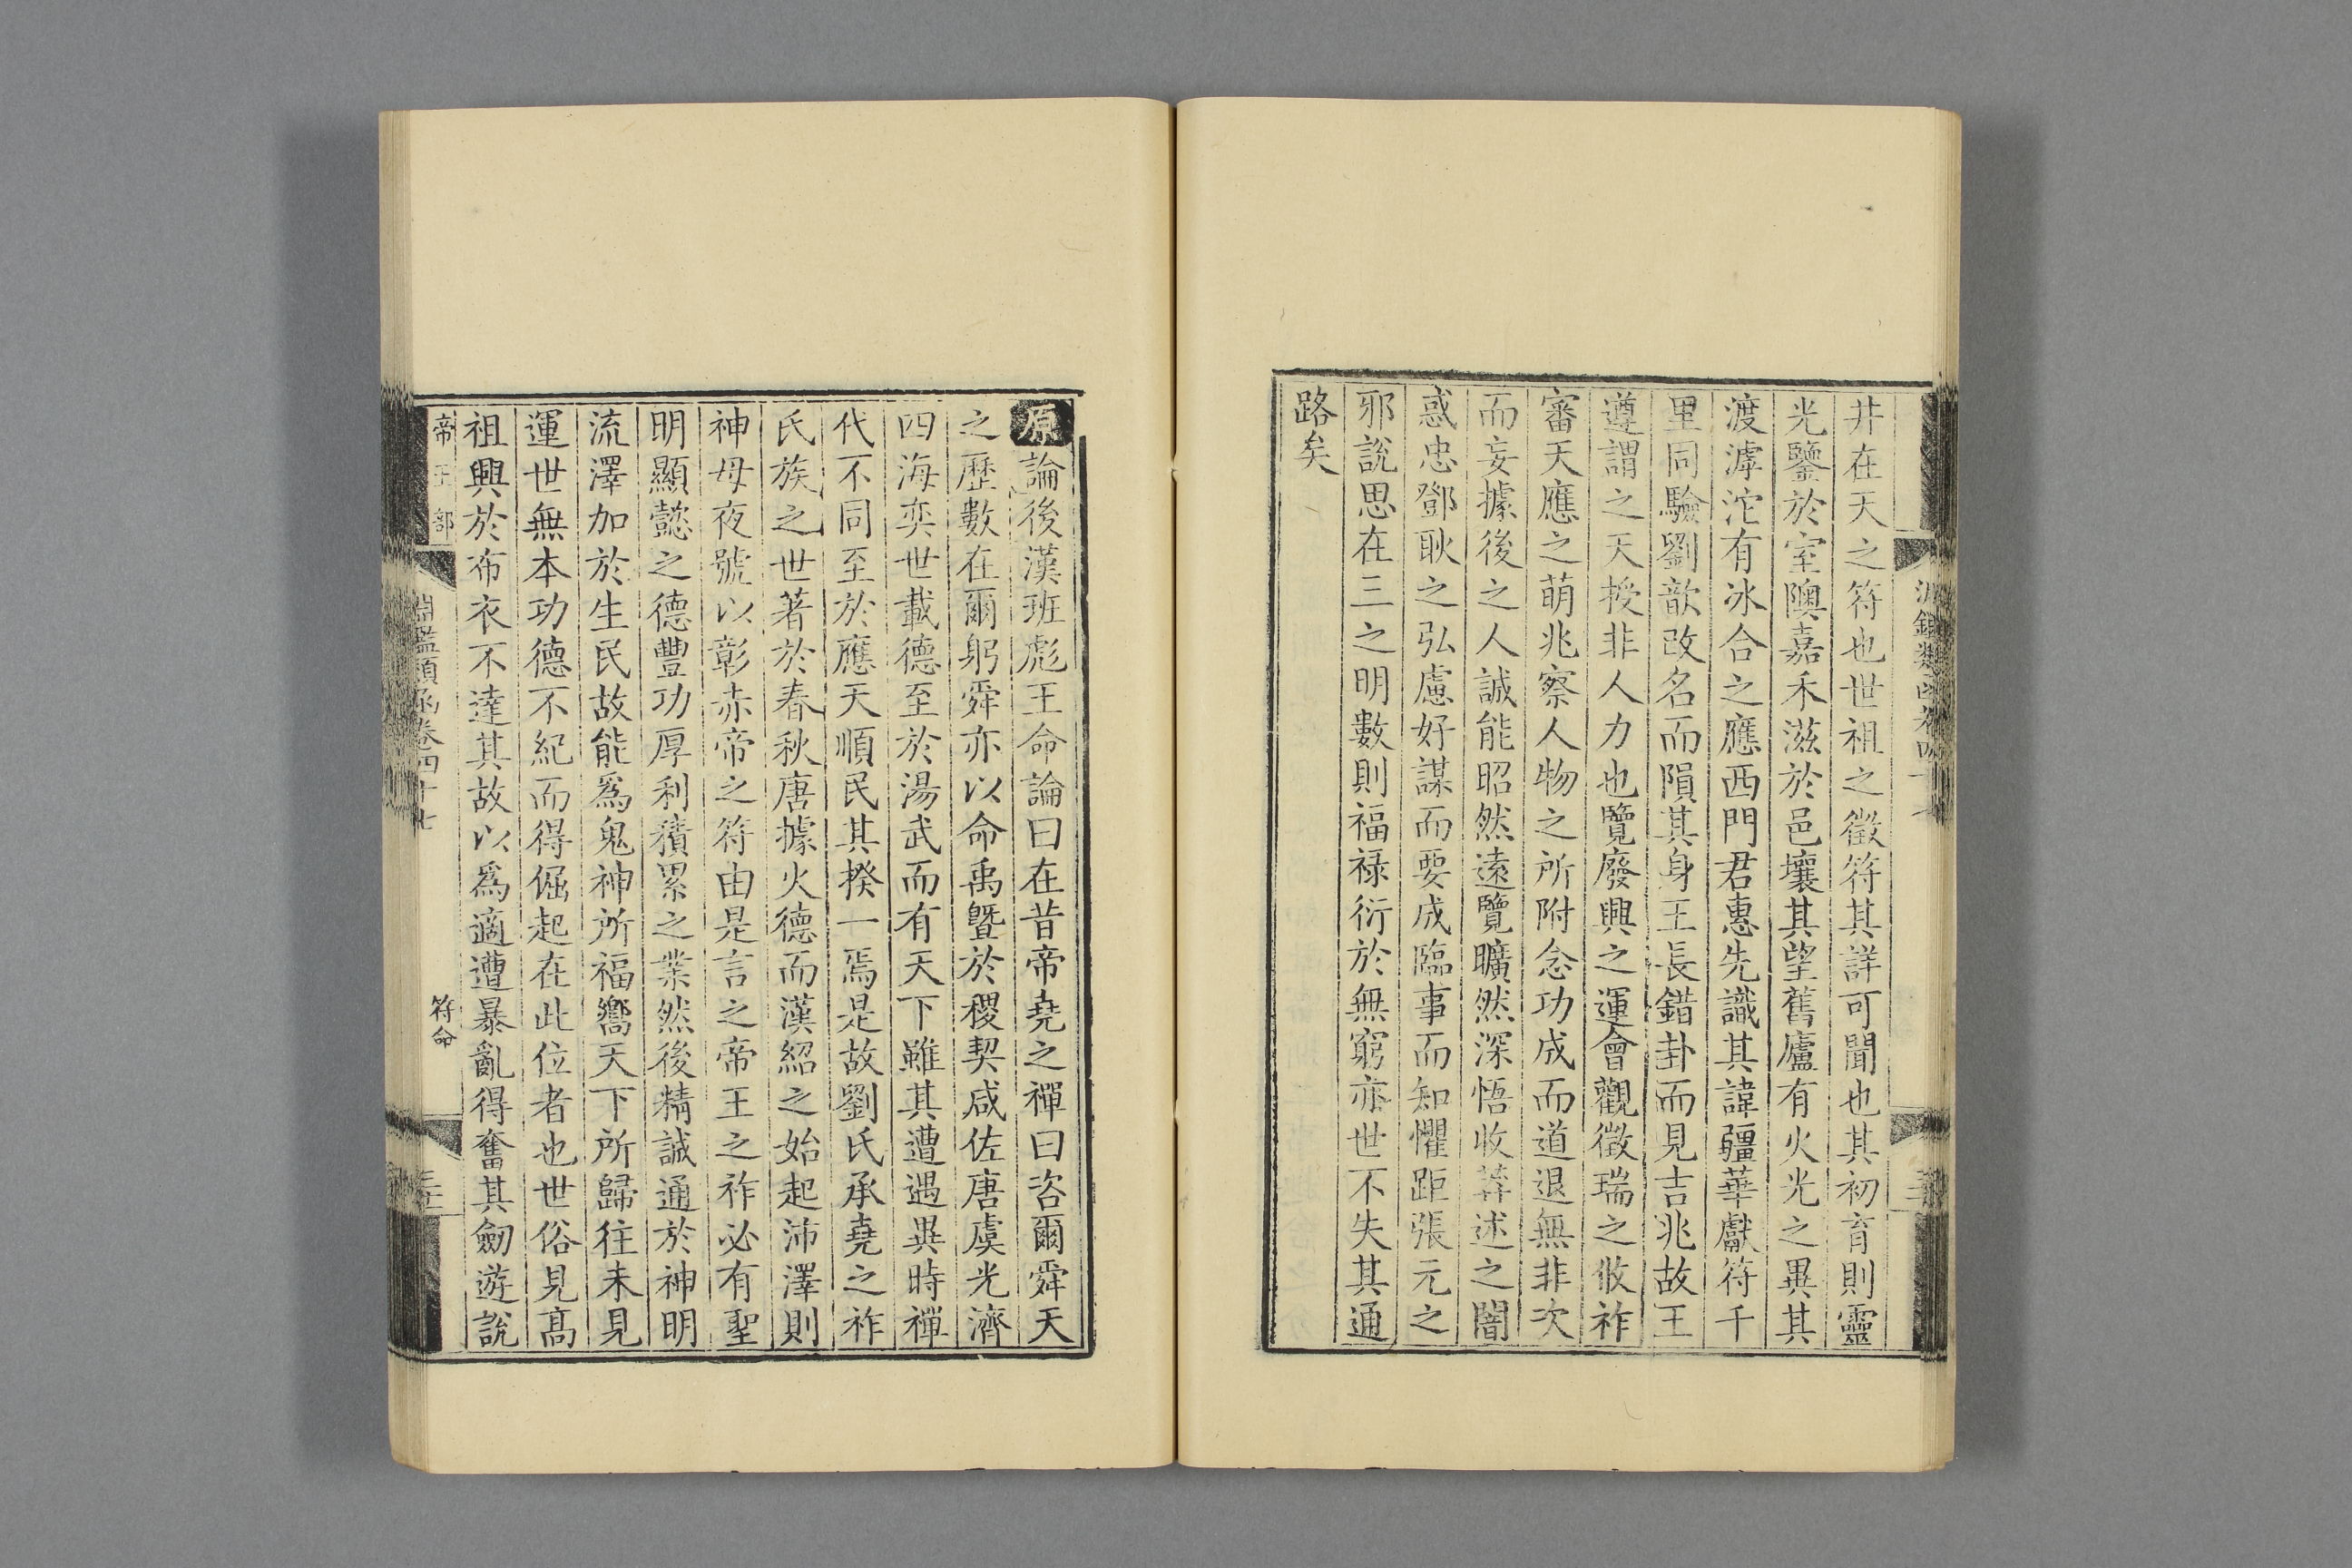 井在天之符也世祖之徵符其詳可聞也其初育則靈
光鑒於室隩嘉禾滋於邑壤其望舊廬有火光之異其
渡滹沱有冰合之應西門君惠先識其諱疆華獻符千
里同驗劉歆改名而隕其身王長錯卦而見吉兆故王
遵謂之天授非人力也覽廢興之運會觀徵瑞之攸祚
審天應之萌兆察人物之所附念功成而道退無非次
而妄據後之人誠能昭然遠覽曠然深悟收莽述之闇
惑忠鄧耿之弘慮好謀而要成臨事而知懼距張元之
邪說思在三之明數則福祿衍於無窮亦世不失其通
路矣
原論後漢班彪王命論曰在昔帝堯之禪曰咨爾舜天
之歷數在爾躬舜亦以命禹暨於稷契咸佐唐虞光濟
四海奕世載德至於湯武而有天下雖其遭遇異時禪
代不同至於應天順民其揆一焉是故劉氏承堯之祚
氏族之世著於春秋唐據火德而漢紹之始起沛澤則
神母夜號以彰赤帝之符由是言之帝王之祚必有聖
明顯懿之德豐功厚利積累之業然後精誠通於神明
流澤加於生民故能爲鬼神所福嚮天下所歸往未見
運世無本功德不紀而得倔起在此位者也世俗見高
祖興於布衣不達其故以爲適遭暴亂得奮其劒遊說
帝王部
淵鑑類函卷四十七
符命